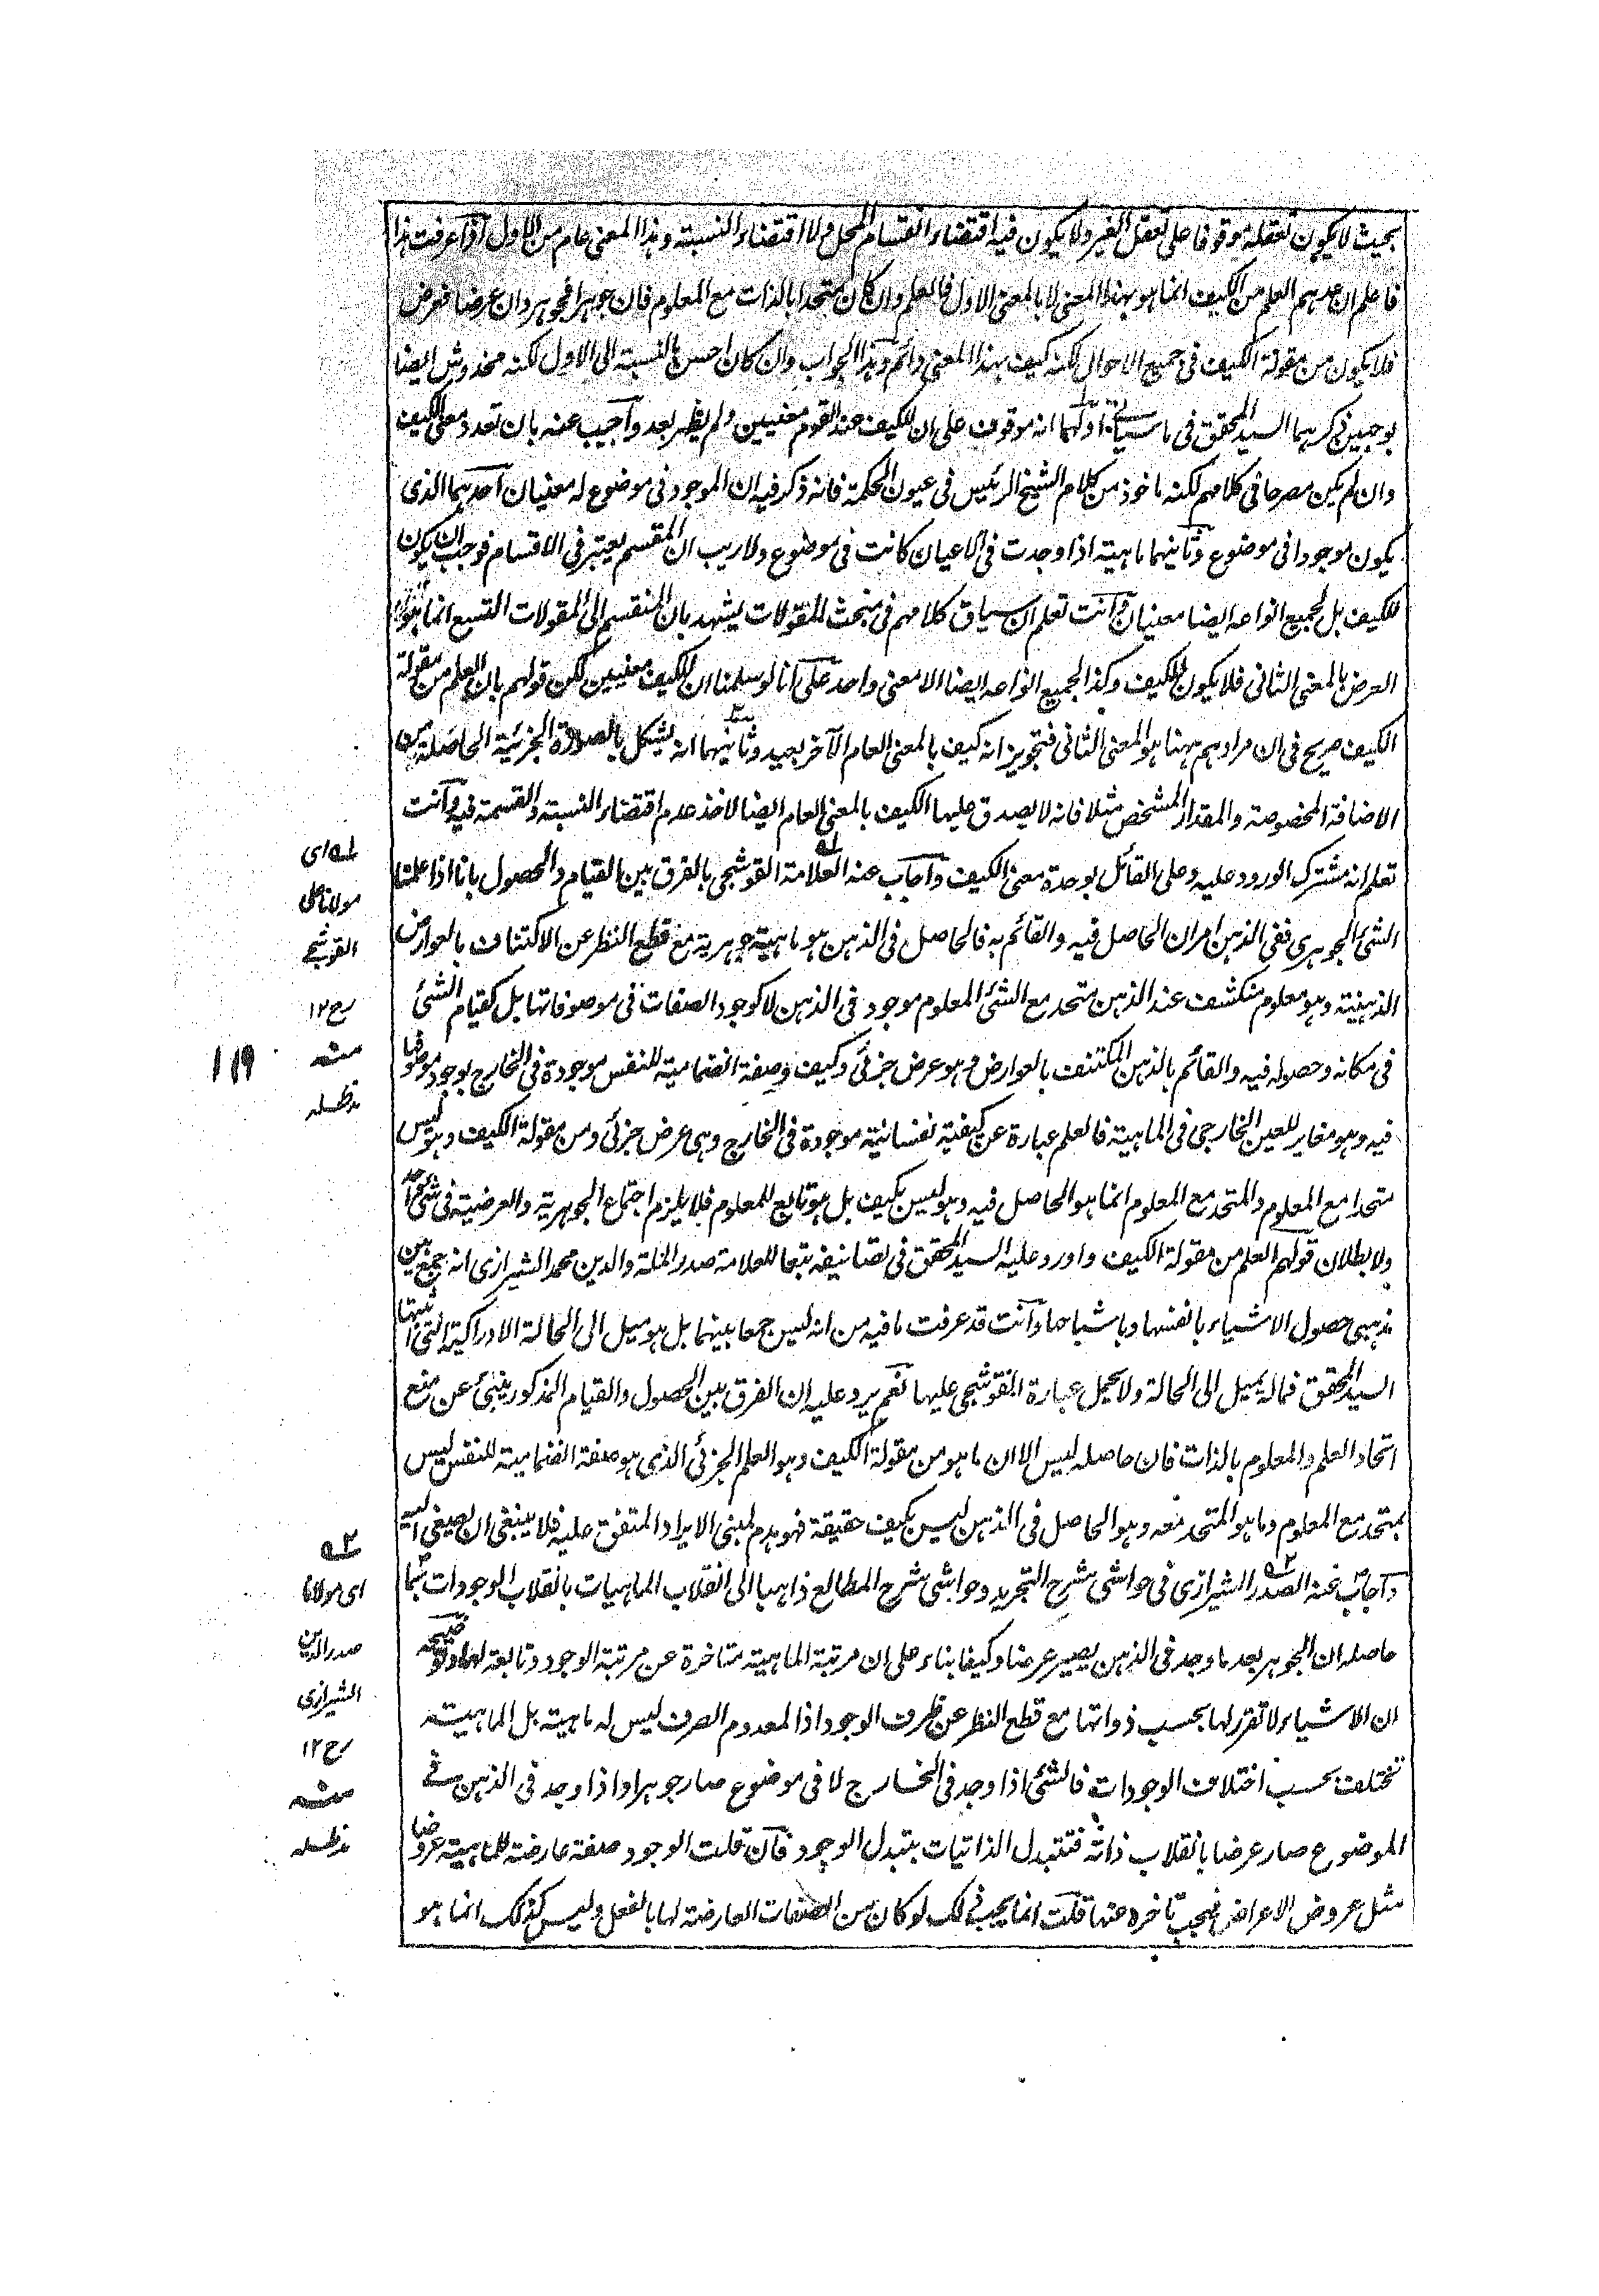 بحيث لا يكون تعقله موقوفا على تعقل الغير ولا يكون فيه اقتضاء انقسام المحل ولا اقتضاء النسبة وهذا المعنى عام من الاول اذا عرفت هذا
فاعلم ان عدهم العلم من الكيف انما هو بهذا المعنى لا بالمعنى الاول فالعلم وان كان متحدا بالذات مع المعلوم فان جوهرا فجوهر وان عرضا فعرض
فلا يكون من مقولة الكيف فى جميع الاحوال لكنه كيف بهذا المعنى دائم وهذا الجواب وان كان احسن بالنسبة الى الاول لكنه مخدوش ايضا
بوجهين ذكرهما السيد المحقق فى اولهما انه موقوف على ان للكيف عند القوم معنيين ولم يظهر بعد واجيب عنه بان تعدد معنى الكيف
وان لم يكن مصرحا فى كلامهم لكنه ماخوذ من كلام الشيخ الرئيس فى عيون الحكمة فانه ذكر فيه ان الموجود فى موضوع له معنيان احدهما الذى
يكون موجودا فى موضوع وثانيهما ماهية اذا وجدت فى الاعيان كانت فى موضوع ولا ريب ان المقسم يعتبر فى الاقسام فوجب ان يكون
للكيف بل لجميع انواعه ايضا معنيان وانت تعلم ان سياق كلامهم فى مبحث المقولات يشهد بان المنقسم الى المقولات التسع انما هو
العرض بالمعنى الثانى فلا يكون للكيف وكذا لجميع انواعه ايضا الا معنى واحد على انا لو سلمنا ان للكيف معنيين لكن قولهم بان العلم من مقولة
الكيف صريح فى ان مرادهم ههنا هو المعنى الثانى فتجويز انه كيف بالمعنى العام الآخر بعيد وثانيهما انه يشكل بالصورة الجزئية الحاصلة من
الاضافة المخصوصة والمقدار المشخص مثلا فانه لا يصدق عليها الكيف بالمعنى العام ايضا لاخذ عدم اقتضاء النسبة والقسمة فيه وانت
تعلم انه مشترك الورود عليه وعلى القائل بوحدة معنى الكيف واجاب عنه العلامة القوشجى بالفرق بين القيام والحصول بانا اذا علمنا
الشئ الجوهرى ففى الذهن امران الحاصل فيه والقائم به فالحاصل فى الذهن هو ماهية جوهرية مع قطع النظر عن الاكتناف بالعوارض
الذهنية وهو معلوم منكشف عند الذهن متحد مع الشئ المعلوم موجود فى الذهن لا كوجود الصفات فى موصوفاتها بل كقيام الشئ
فى مكانه وحصوله فيه والقائم بالذهن المكتنف بالعوارض هو عرض جزئى وكيف وصفة انضمامية للنفس موجودة فى الخارج بوجود موصوفها
فيه وهو مغاير للعين الخارجى فى الماهية فالعلم عبارة عن كيفية نفسانية موجودة فى الخارج وهى عرض جزئى ومن مقولة الكيف وهو ليس
متحدا مع المعلوم والمتحد مع المعلوم انما هو الحاصل فيه وهو ليس بكيف بل هو تابع للمعلوم فلا يلزم اجتماع الجوهرية والعرضية فى شئ واحد
ولا بطلان قولهم العلم من مقولة الكيف واورد عليه السيد المحقق فى تصانيفه تبعا للعلامة صدر الملة والدين محمد الشيرازى انه جمع بين
مذهبى حصول الاشياء بانفسها وباشباحها وانت قد عرفت ما فيه من انه ليس جمعا بينهما بل هو ميل الى الحالة الادراكية التى اثبتها
السيد المحقق فماله يميل الى الحالة ولا يحمل عبارة القوشجى عليها نعم يرد عليه ان الفرق بين الحصول والقيام المذكور ينبئ عن منع
اتحاد العلم والمعلوم بالذات فان حاصله ليس الا ان ما هو من مقولة الكيف وهو العلم الجزئى الذى هو صفة انضمامية للنفس ليس
بمتحد مع المعلوم وما هو المتحد معه وهو الحاصل فى الذهن ليس بكيف حقيقة فهو هدم لمبنى الايراد المتفق عليه فلا ينبغى ان يصغى اليه
واجاب عنه الصدر الشيرازى فى حواشى شرح التجريد وحواشى شرح المطالع ذاهبا الى انقلاب الماهيات بانقلاب الوجودات بما
حاصله ان الجوهر بعد ما وجد فى الذهن يصير عرضا وكيفا بناء على ان مرتبة الماهية متاخرة عن مرتبة الوجود وتابعة لها وتوضيحه
ان الاشياء لا تقرر لها بحسب ذواتها مع قطع النظر عن ظروف الوجود اذ المعدوم الصرف ليس له ماهية بل الماهية
تختلف بحسب اختلاف الوجودات فالشئ اذا وجد فى الخارج لا فى موضوع صار جوهرا واذا وجد فى الذهن فى
الموضوع صار عرضا بانقلاب ذاته فتتبدل الذاتيات بتبدل الوجود فان قلت الوجود صفة عارضة للماهية عروضا
مثل عروض الاعراض فيجب تاخره عنها قلت انما يجب ذلك لو كان من الصفات العارضة لها بالفعل وليس كذلك انما هو
له اى
مولانا على
القوشجى
رح ١٢
منه
مدظله
١١٩
٢ه
اى مولانا
صدر الدين
الشيرازى
رح ١٢
منه
مدظله